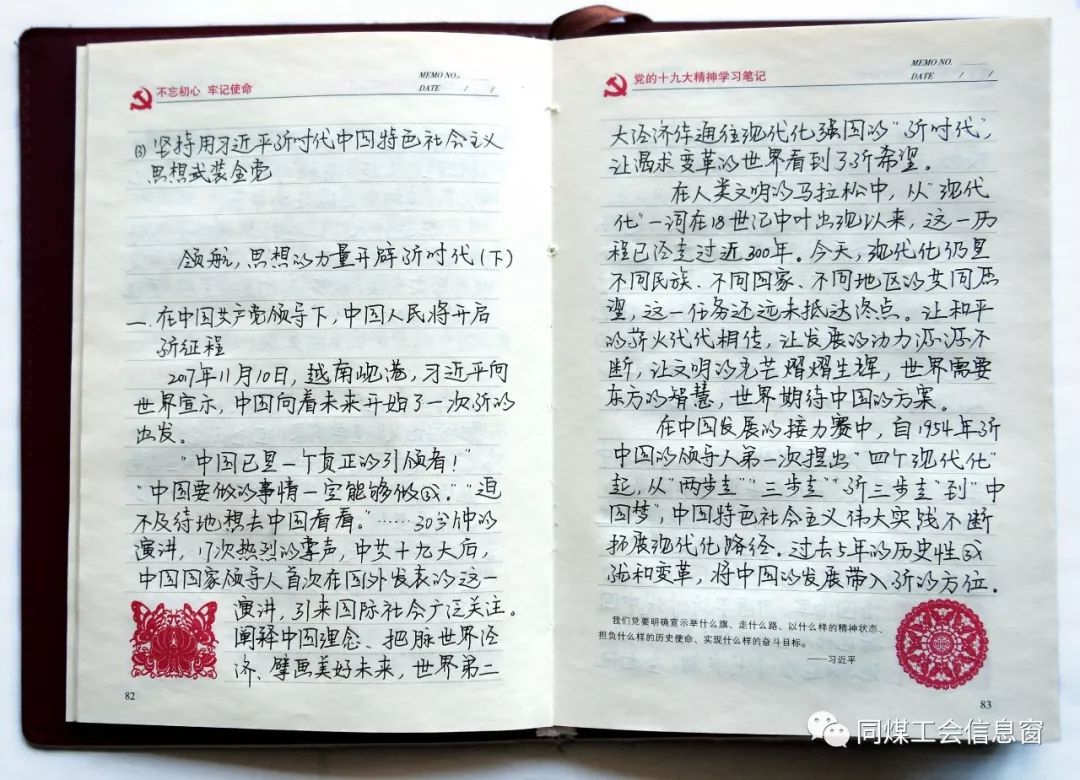 不忘初心 牢记使命
MEMO NO.
DATE / /
(3) 坚持用习近平新时代中国特色社会主义
思想武装全党
领航,思想的力量开辟新时代(下)
一.在中国共产党领导下,中国人民将开启
新征程
2017年11月10日,越南岘港,习近平向
世界宣示,中国向着未来开始了一次新的
出发。
“中国已是一个真正的引领者!”
“中国要做的事情一定能够做成。”“迫
不及待地想去中国看看。”……30分钟的
演讲,17次热烈的掌声,中共十九大后,
中国国家领导人首次在国外发表的这一
演讲,引来国际社会广泛关注。
阐释中国理念、把脉世界经
济、擘画美好未来,世界第二
82
党的十九大精神学习笔记
MEMO NO.
DATE / /
大经济体通往现代化强国的“新时代”,
让渴求变革的世界看到了新希望。
在人类文明的马拉松中,从“现代
化”一词在18世纪中叶出现以来,这一历
程已经走过近300年。今天,现代化仍是
不同民族、不同国家、不同地区的共同愿
望,这一任务还远未抵达终点。让和平
的薪火代代相传,让发展的动力源源不
断,让文明的光芒熠熠生辉,世界需要
东方的智慧,世界期待中国的方案。
在中国发展的接力赛中,自1954年新
中国的领导人第一次提出“四个现代化”
起,从“两步走”“三步走”“新三步走”到“中
国梦”,中国特色社会主义伟大实践不断
拓展现代化路径。过去5年的历史性成
就和变革,将中国的发展带入新的方位。
我们党要明确宣示举什么旗、走什么路、以什么样的精神状态、
担负什么样的历史使命、实现什么样的奋斗目标。
——习近平
83
同煤工会信息窗